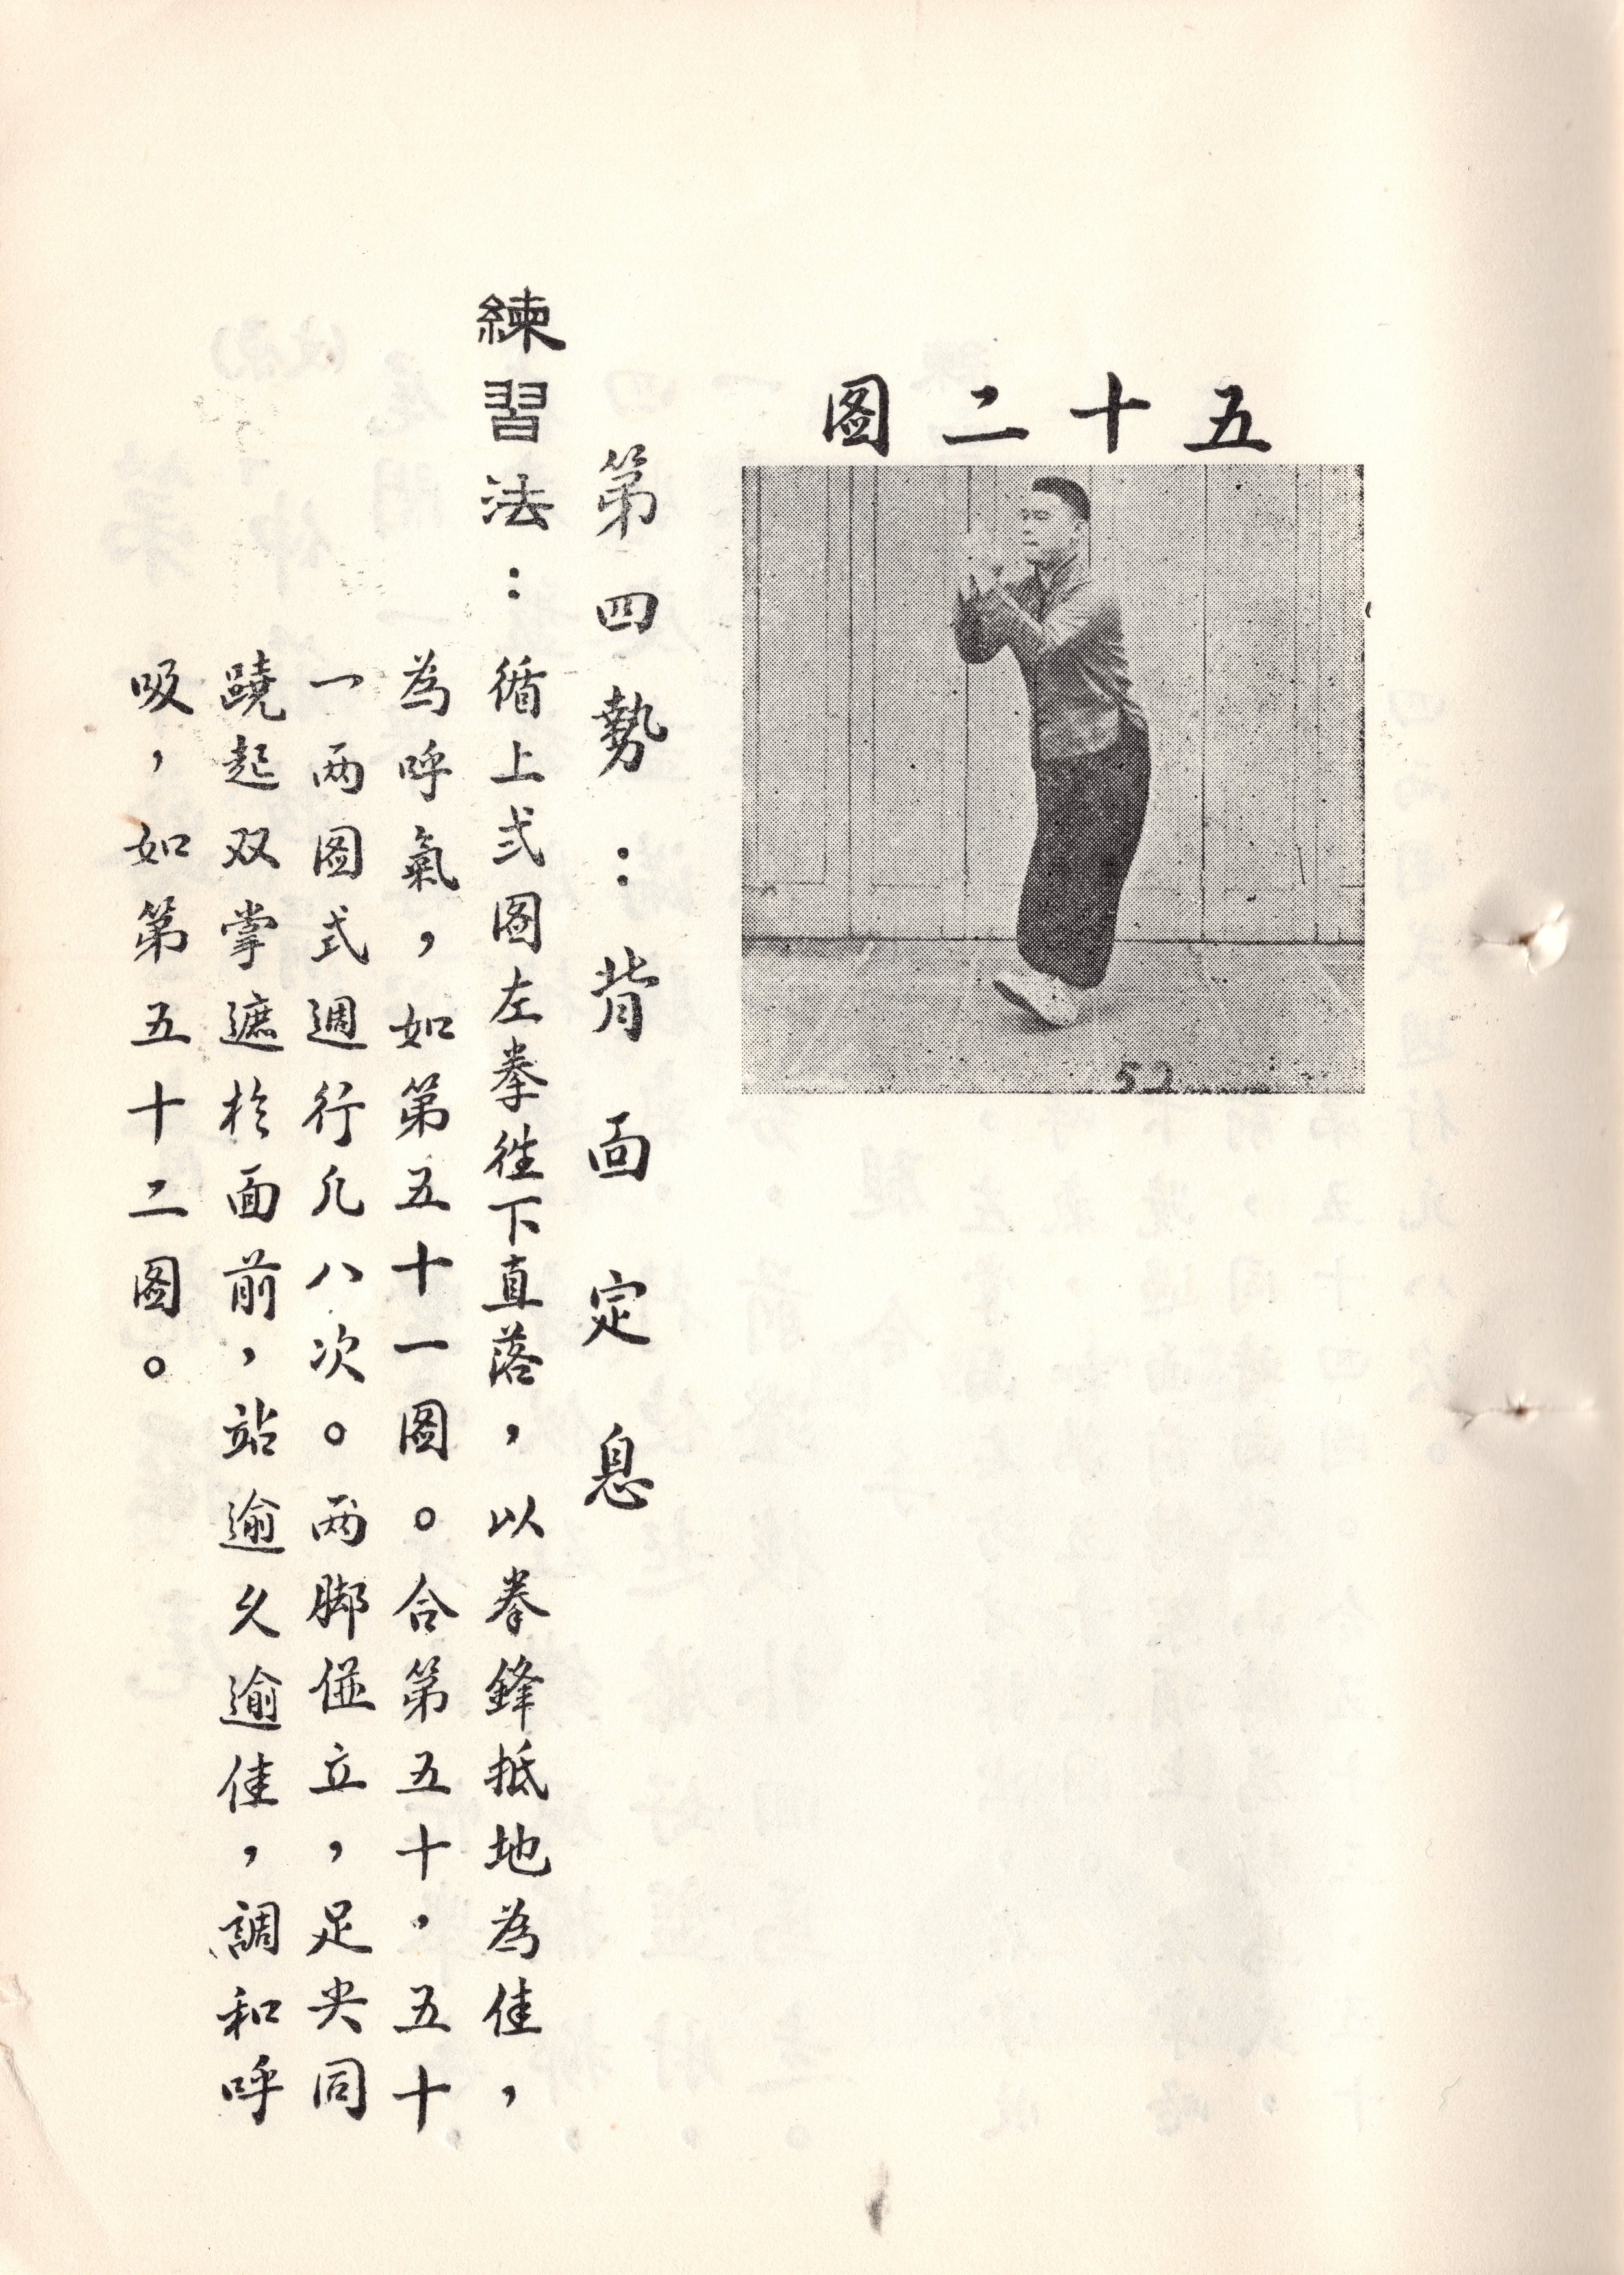 五十二图
52
第四勢：背面定息
練習法：循上式图左拳徃下直落，以拳鋒抵地為佳，
為呼氣，如第五十一图。合第五十，五十
一两图式週行凡八次。两脚並立，足尖同
蹺起双掌遮於面前，站逾久逾佳，調和呼
吸，如第五十二图。